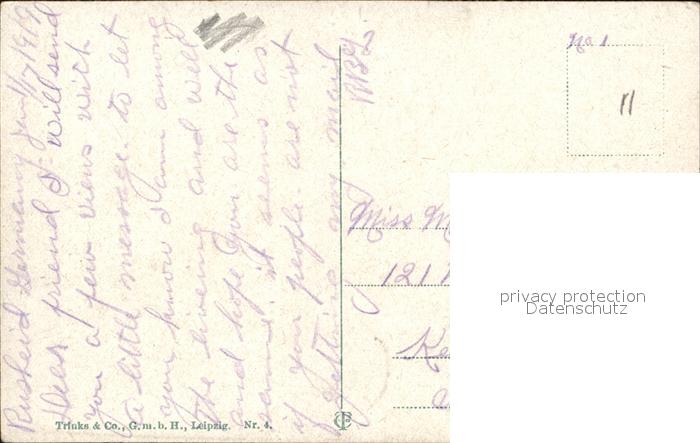 Rusheid Germany Jan/17/1919
Dear friend I will send
you a few views with
a little message to let
you know I am among
the liveing and well
and hope you are the
same. it seems as
if your people are not
getting any mail
No 1
11
Miss M
1217
Trinks & Co., G.m.b.H., Leipzig. Nr. 4.
privacy protection
Datenschutz